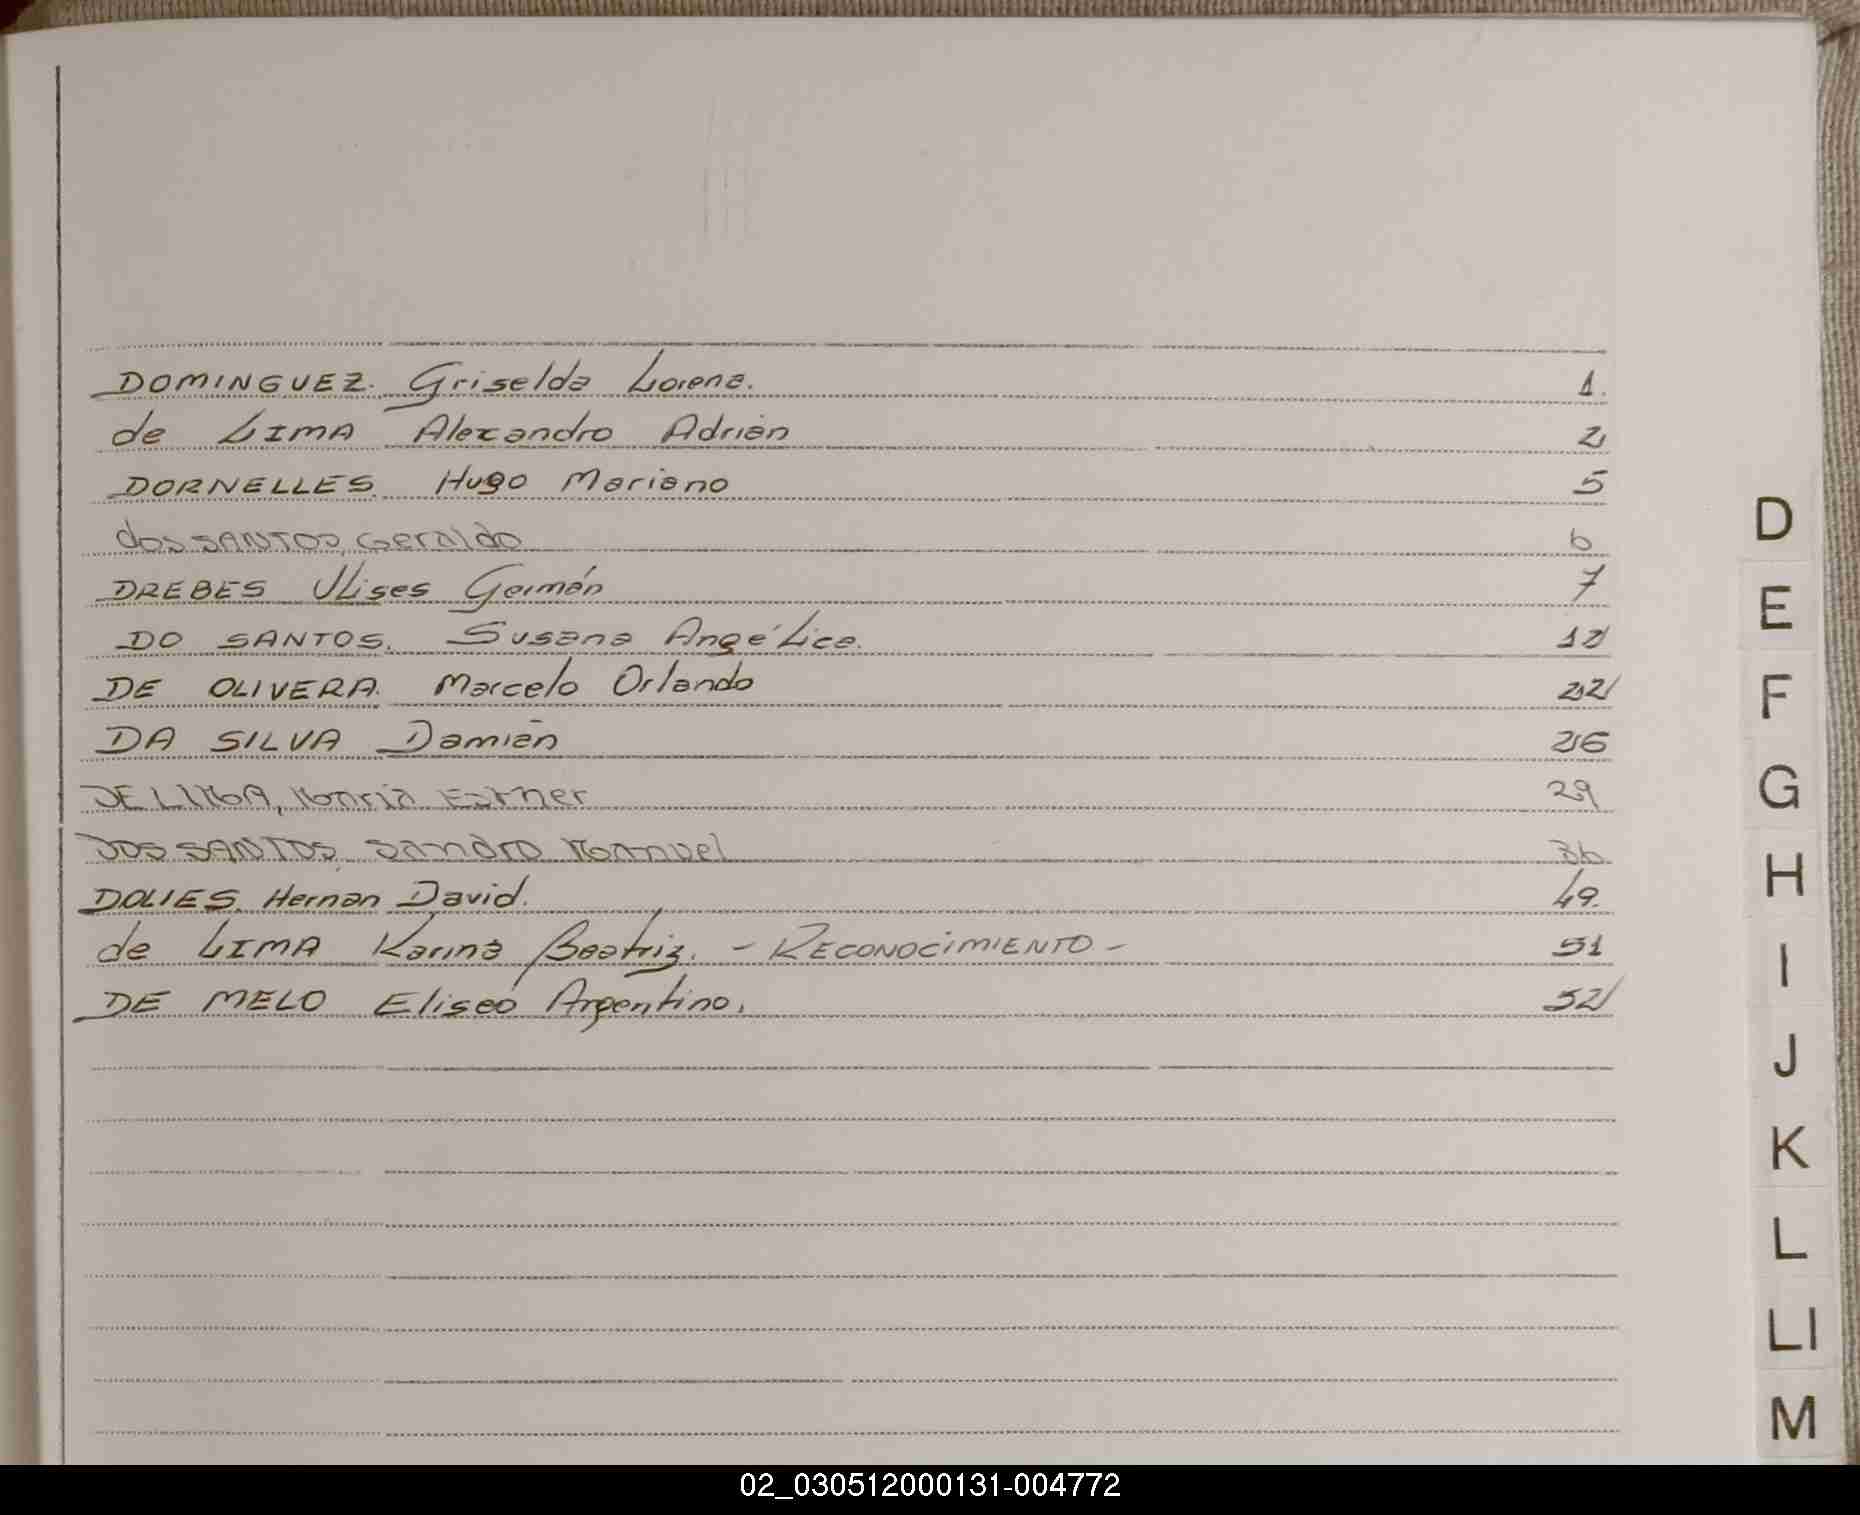 DOMINGUEZ. Griselda Lorena. 1.
de LIMA Alexandro Adrián 2
DORNELLES. Hugo Mariano 5
dos SANTOS, Geraldo 6
DREBES Ulises Germán 7
DO SANTOS. Susana Angélica. 12
DE OLIVERA. Marcelo Orlando 22
DA SILVA Damián 26
DE LIMA, María Esther 29
DOS SANTOS, Sandro Manuel 36
DOLIES. Hernan David. 49.
de LIMA Karina Beatriz. - RECONOCIMIENTO - 51
DE MELO Eliseo Argentino. 52
D
E
F
G
H
I
J
K
L
Ll
M
02_030512000131-004772